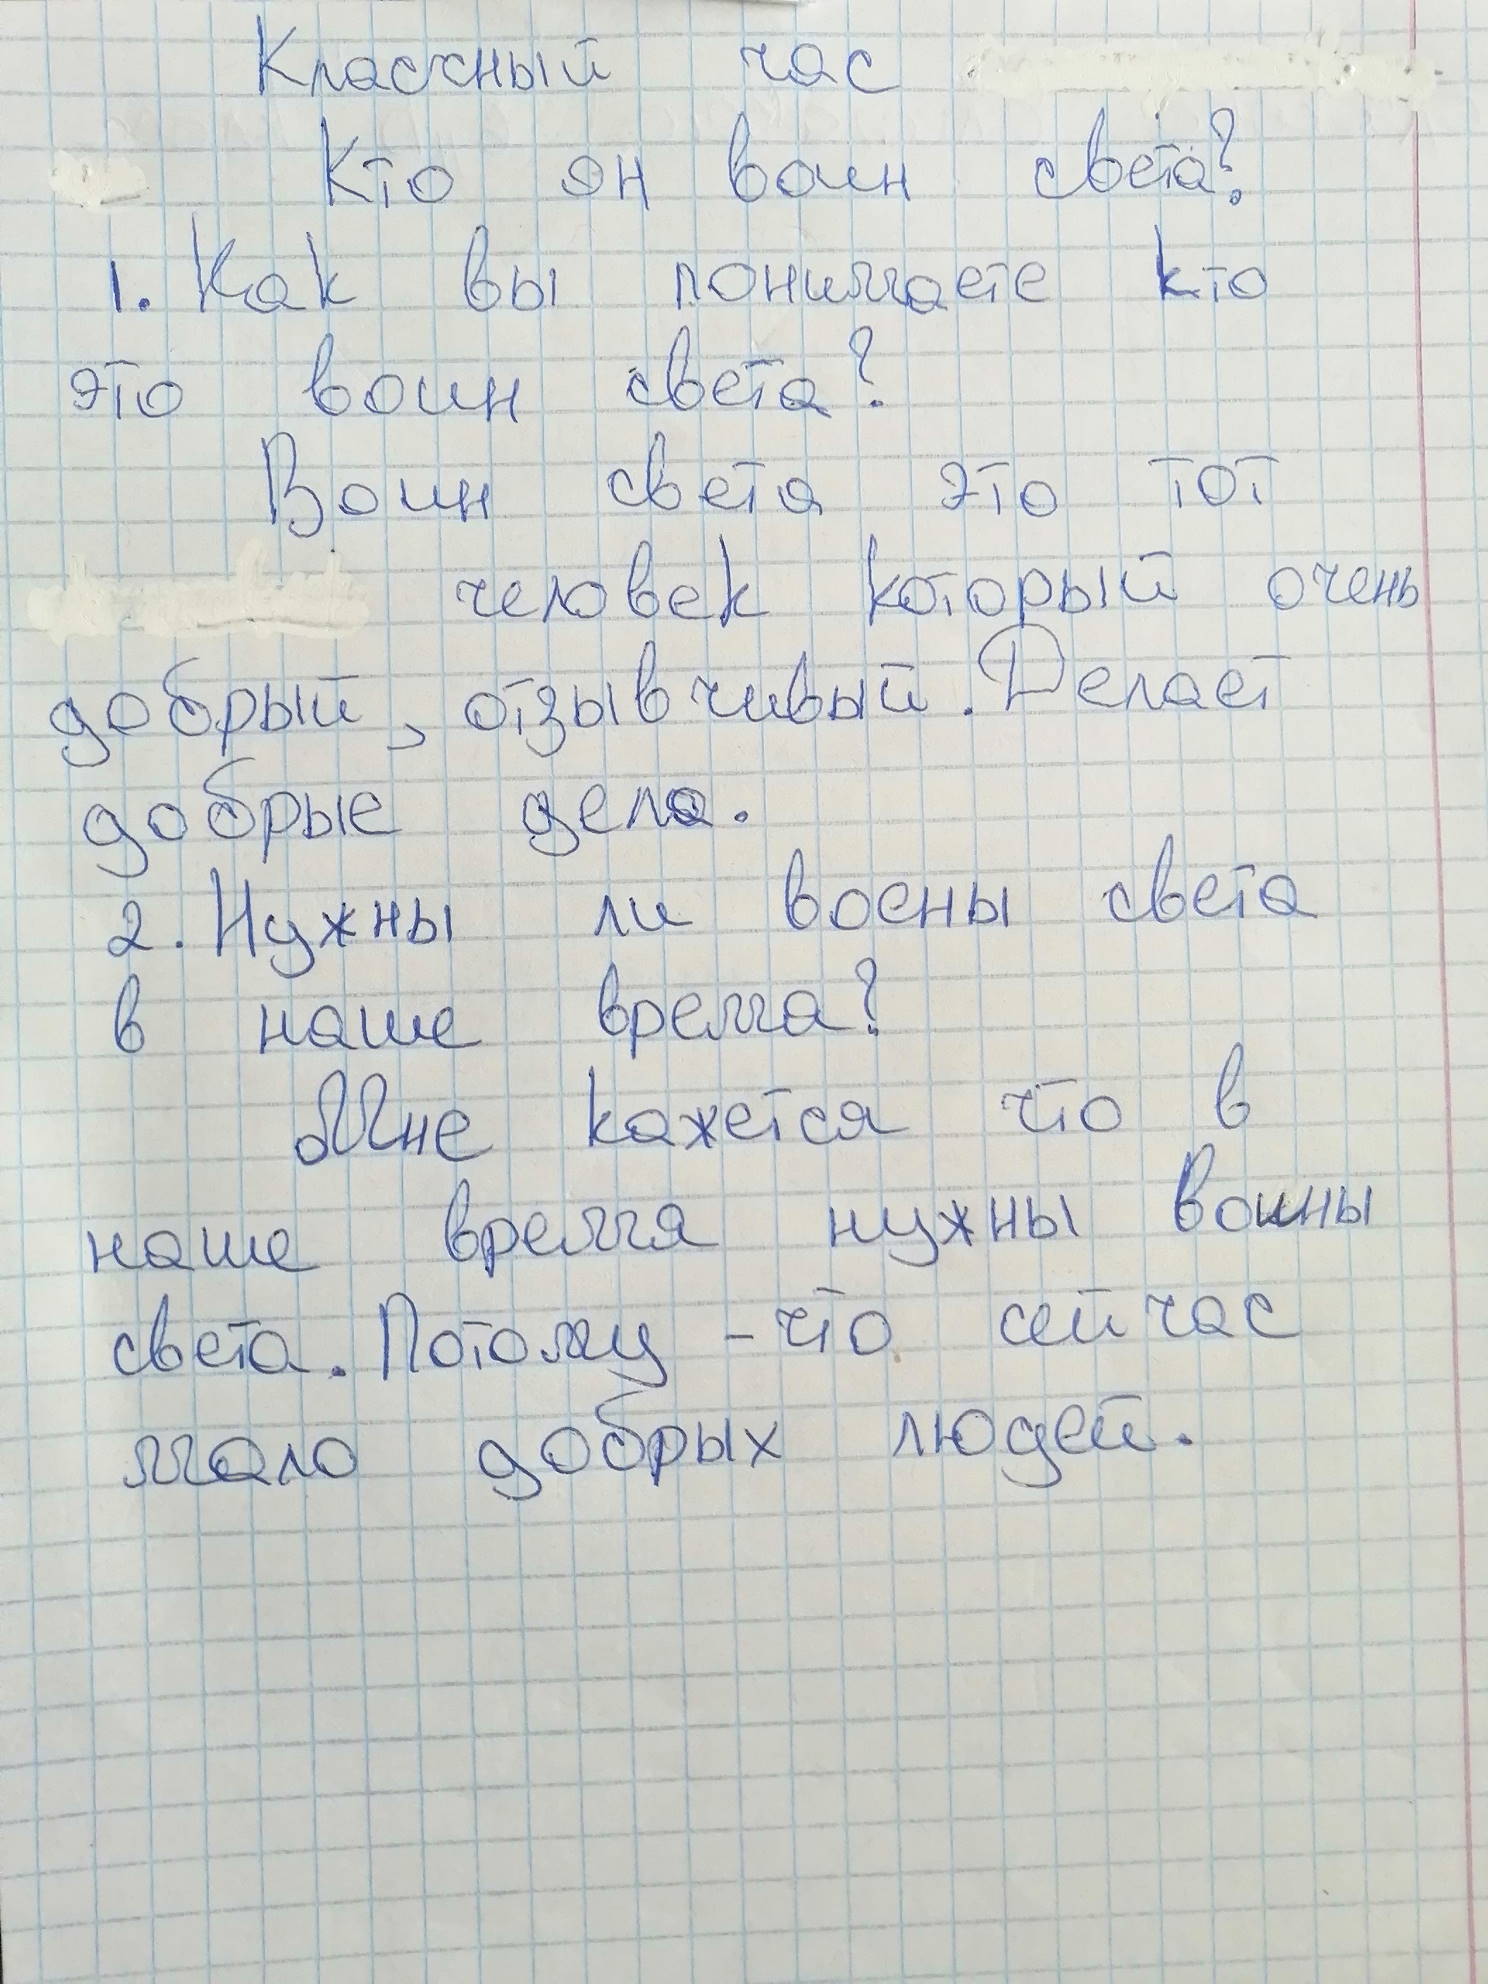 Классный час
Кто он воин света?
1. Как вы понимаете кто
это воин света?
Воин света это тот
человек который очень
добрый, отзывчивый. Делает
добрые дела.
2. Нужны ли воены света
в наше время?
Мне кажется что в
наше время нужны воины
света. Потому-что сейчас
мало добрых людей.